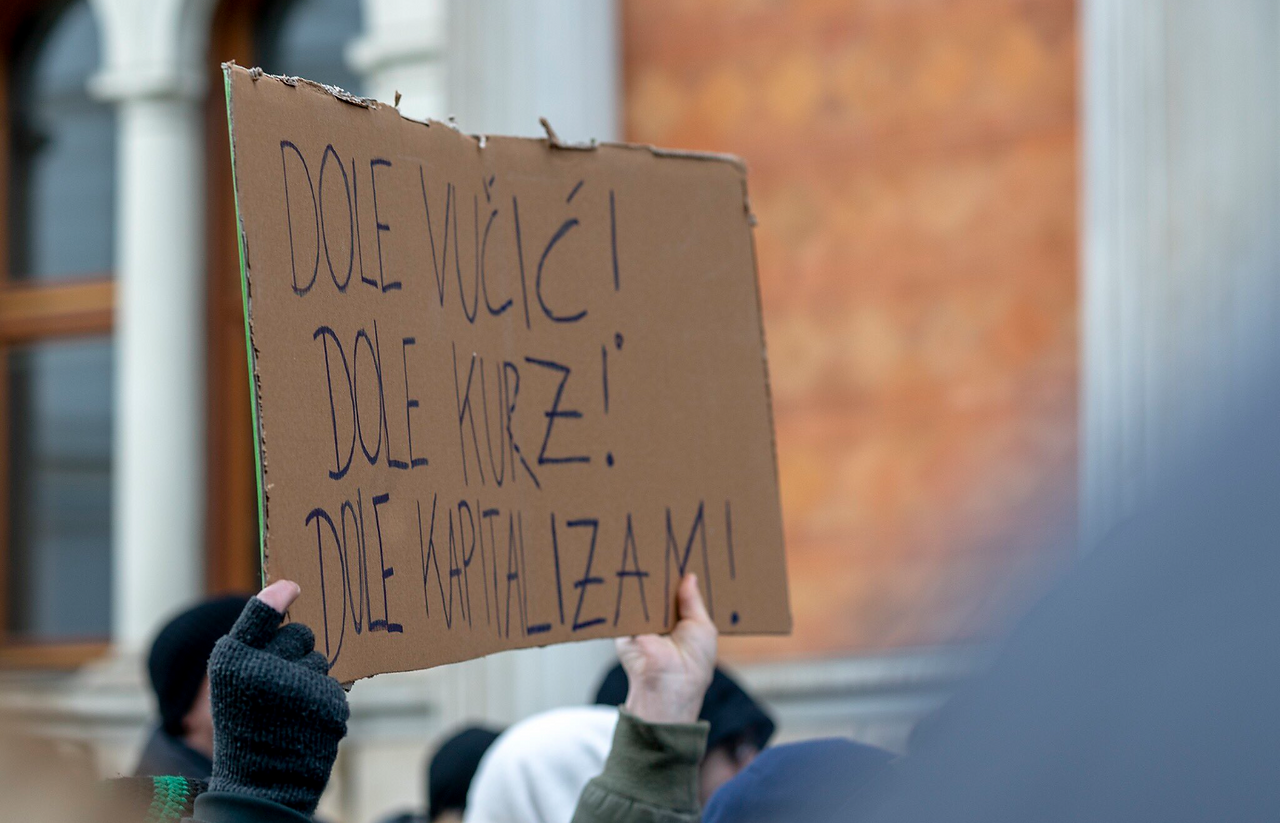 DOLE VUČIĆ!
DOLE KURZ!
DOLE KAPITALIZAM!